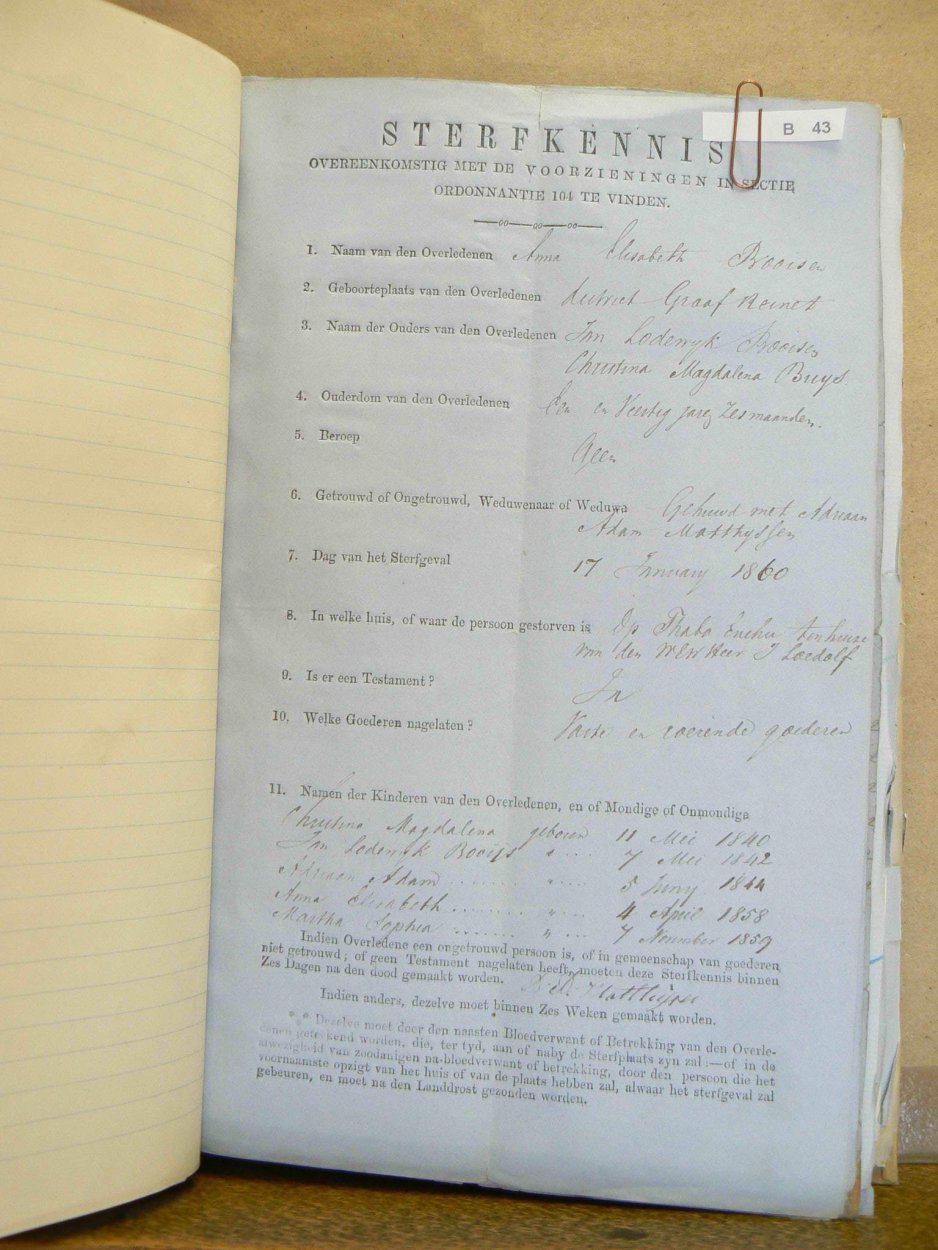 B 43
STERFKENNIS
OVEREENKOMSTIG MET DE VOORZIENINGEN IN SECTIE
ORDONNANTIE 104 TE VINDEN.
1. Naam van den Overledenen Anna Elisabeth Booisen
2. Geboorteplaats van den Overledenen district Graaf Reinet
3. Naam der Ouders van den Overledenen Jan Lodewyk Booisen
Christina Magdalena Buys
4. Ouderdom van den Overledenen Een en Veertig jaren Zes maanden.
5. Beroep Geen
6. Getrouwd of Ongetrouwd, Weduwenaar of Weduwe Gehuwd met Adriaan
Adam Matthyssen
7. Dag van het Sterfgeval 17 January 1860
8. In welke huis, of waar de persoon gestorven is Op Thaba tenhuise
van den WEW Heer J
9. Is er een Testament? Ja
10. Welke Goederen nagelaten? Vaste en roerende goederen
11. Namen der Kinderen van den Overledenen, en of Mondige of Onmondige
Christina Magdalena geboren 11 Mei 1840
Jan Lodewyk Booijs " .... 7 Mei 1842
Adriaan Adam ........ " .... 5 Juny 1844
Anna Elisabeth ....... " .... 4 April 1858
Martha Sophia ....... " .... 7 November 1859
Indien Overledene een ongetrouwd persoon is, of in gemeenschap van goederen
niet getrouwd; of geen Testament nagelaten heeft, moeten deze Sterfkennis binnen
Zes Dagen na den dood gemaakt worden.
Indien anders, dezelve moet binnen Zes Weken gemaakt worden.
*** Dezelve moet door den naasten Bloedverwant of Betrekking van den Overle-
denen geteekend worden, die, ter tyd, aan of naby de Sterfplaats zyn zal:—of in de
afwezigheid van zoodanigen na-bloedverwant of betrekking, door den persoon die het
voornaamste opzigt van het huis of van de plaats hebben zal, alwaar het sterfgeval zal
gebeuren, en moet na den Landdrost gezonden worden.